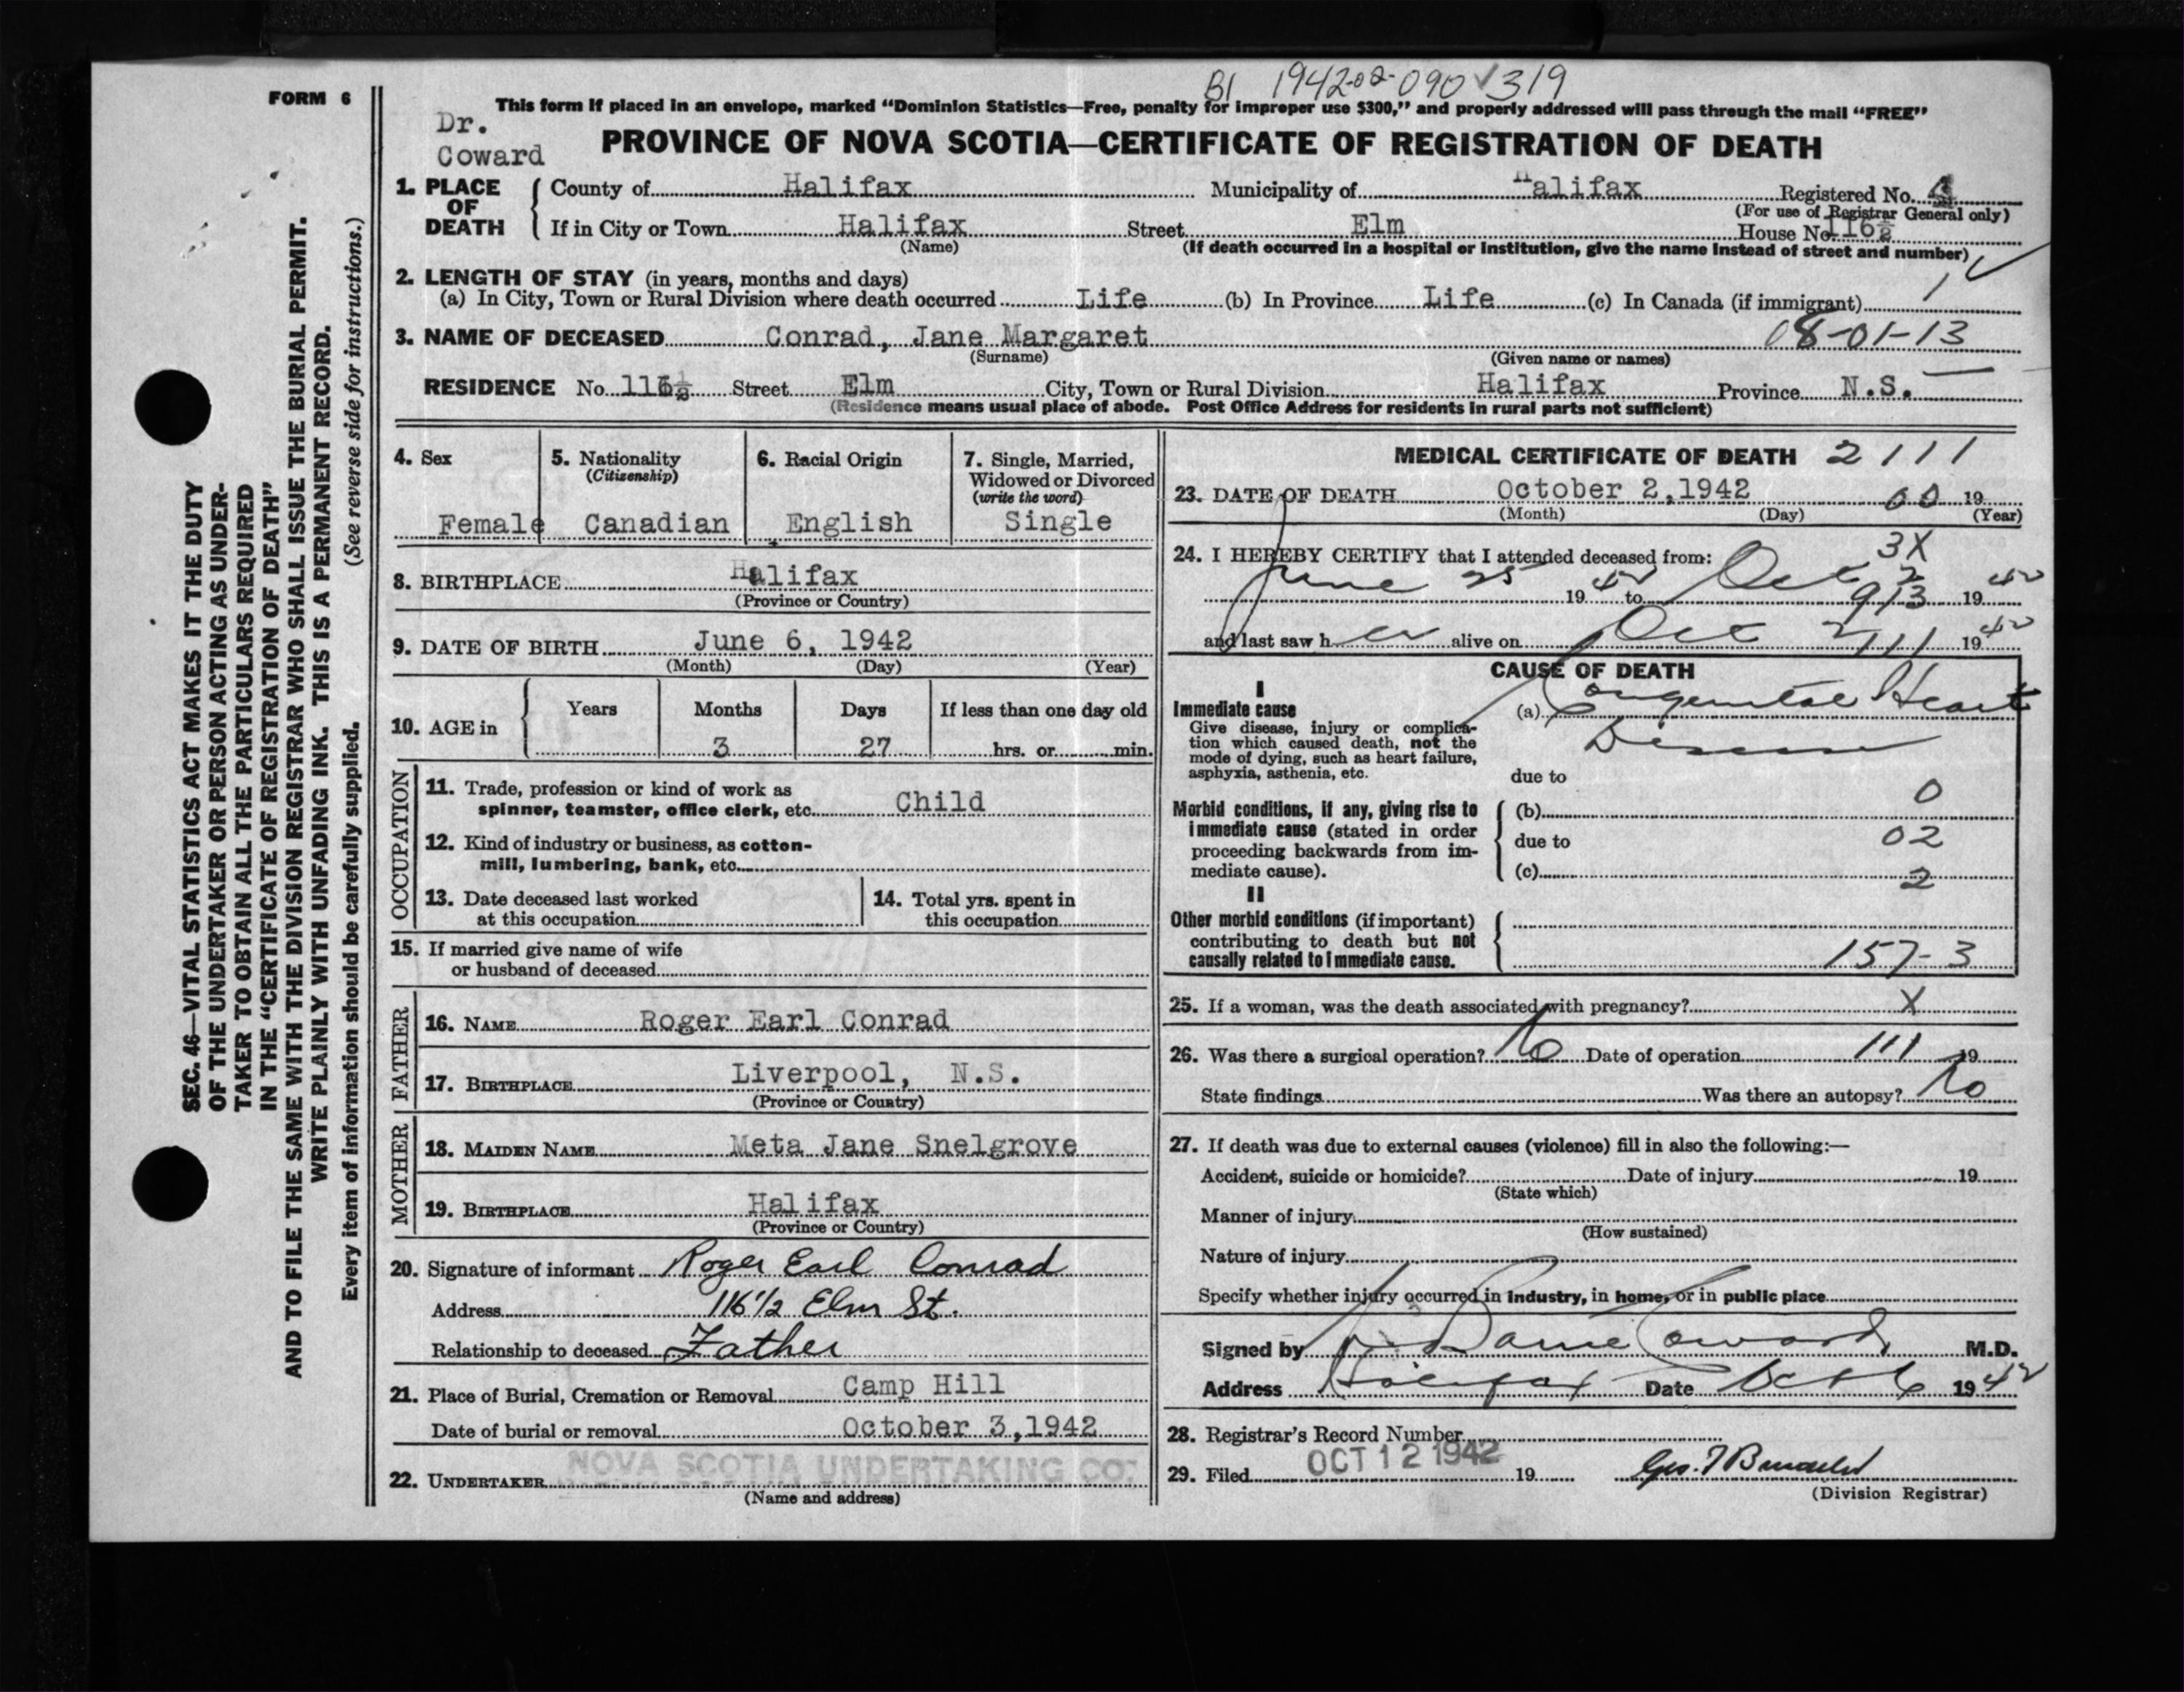 B1 1942-02-090 319
FORM 6
This form if placed in an envelope, marked “Dominion Statistics—Free, penalty for improper use $300,” and properly addressed will pass through the mail “FREE”
Dr.
Coward
PROVINCE OF NOVA SCOTIA—CERTIFICATE OF REGISTRATION OF DEATH
1. PLACE OF DEATH
County of Halifax Municipality of Halifax Registered No. 4
(For use of Registrar General only)
If in City or Town Halifax Street Elm House No. 116½
(Name) (If death occurred in a hospital or institution, give the name instead of street and number)
2. LENGTH OF STAY (in years, months and days)
(a) In City, Town or Rural Division where death occurred Life (b) In Province Life (c) In Canada (if immigrant) 1
3. NAME OF DECEASED Conrad, Jane Margaret 08-01-13
(Surname) (Given name or names)
RESIDENCE No. 116½ Street Elm City, Town or Rural Division Halifax Province N.S.
(Residence means usual place of abode. Post Office Address for residents in rural parts not sufficient)
4. Sex
Female
5. Nationality
(Citizenship)
Canadian
6. Racial Origin
English
7. Single, Married,
Widowed or Divorced
(write the word)
Single
8. BIRTHPLACE Halifax
(Province or Country)
9. DATE OF BIRTH June 6, 1942
(Month) (Day) (Year)
10. AGE in
Years Months Days If less than one day old
3 27 hrs. or min.
OCCUPATION
11. Trade, profession or kind of work as
spinner, teamster, office clerk, etc. Child
12. Kind of industry or business, as cotton-
mill, lumbering, bank, etc.
13. Date deceased last worked
at this occupation
14. Total yrs. spent in
this occupation
15. If married give name of wife
or husband of deceased
FATHER
16. NAME Roger Earl Conrad
17. BIRTHPLACE Liverpool, N.S.
(Province or Country)
MOTHER
18. MAIDEN NAME Meta Jane Snelgrove
19. BIRTHPLACE Halifax
(Province or Country)
20. Signature of informant Roger Earl Conrad
Address 116 1/2 Elm St.
Relationship to deceased Father
21. Place of Burial, Cremation or Removal Camp Hill
Date of burial or removal October 3, 1942
22. UNDERTAKER NOVA SCOTIA UNDERTAKING CO.
(Name and address)
MEDICAL CERTIFICATE OF DEATH 2111
23. DATE OF DEATH October 2, 1942 00 19
(Month) (Day) (Year)
24. I HEREBY CERTIFY that I attended deceased from: 3X
June 25 1942 to Oct 2 913 1942
and last saw her alive on Oct 2 111 1942
CAUSE OF DEATH
I
Immediate cause
Give disease, injury or complica-
tion which caused death, not the
mode of dying, such as heart failure,
asphyxia, asthenia, etc.
(a) Congenital Heart
Disease
due to
0
Morbid conditions, if any, giving rise to
immediate cause (stated in order
proceeding backwards from im-
mediate cause).
(b)
due to 02
(c) 2
II
Other morbid conditions (if important)
contributing to death but not
causally related to immediate cause.
157-3
25. If a woman, was the death associated with pregnancy? X
26. Was there a surgical operation? No Date of operation 111 19
State findings Was there an autopsy? No
27. If death was due to external causes (violence) fill in also the following:—
Accident, suicide or homicide? Date of injury 19
(State which)
Manner of injury
(How sustained)
Nature of injury
Specify whether injury occurred in industry, in home, or in public place
Signed by Coward M.D.
Address Halifax Date Oct 6 1942
28. Registrar's Record Number
29. Filed OCT 12 1942 19
(Division Registrar)
SEC. 46—VITAL STATISTICS ACT MAKES IT THE DUTY
OF THE UNDERTAKER OR PERSON ACTING AS UNDER-
TAKER TO OBTAIN ALL THE PARTICULARS REQUIRED
IN THE “CERTIFICATE OF REGISTRATION OF DEATH”
AND TO FILE THE SAME WITH THE DIVISION REGISTRAR WHO SHALL ISSUE THE BURIAL PERMIT.
WRITE PLAINLY WITH UNFADING INK. THIS IS A PERMANENT RECORD.
Every item of information should be carefully supplied. (See reverse side for instructions.)